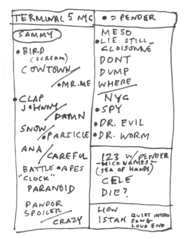 TERMINAL 5 NYC
• = PENDER
SAMMY
• BIRD
(SCREAM)
COWTOWN
/MR. ME
• CLAP
JOHNNY
/DAMN
SNOW
/PARTICLE
ANA
/CAREFUL
BATTLE • APES
"CLOCK"
PARANOID
PANDOR
SPOILER
/CRAZY
MESO
• LIE STILL
CLOISONNE
DONT
DUMP
WHERE
NYC
• SPY
• DR. EVIL
• DR. WORM
123 W/PENDER
(SEA OF HANDS)
CELE
DIE?
HOW
ISTAN
QUIET INTRO
SONG
LOUD END